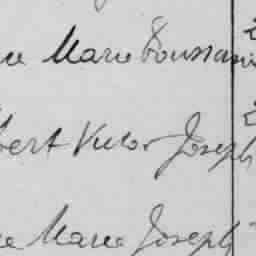 Marie Toussaint
bert Victor Joseph
Marie Joseph